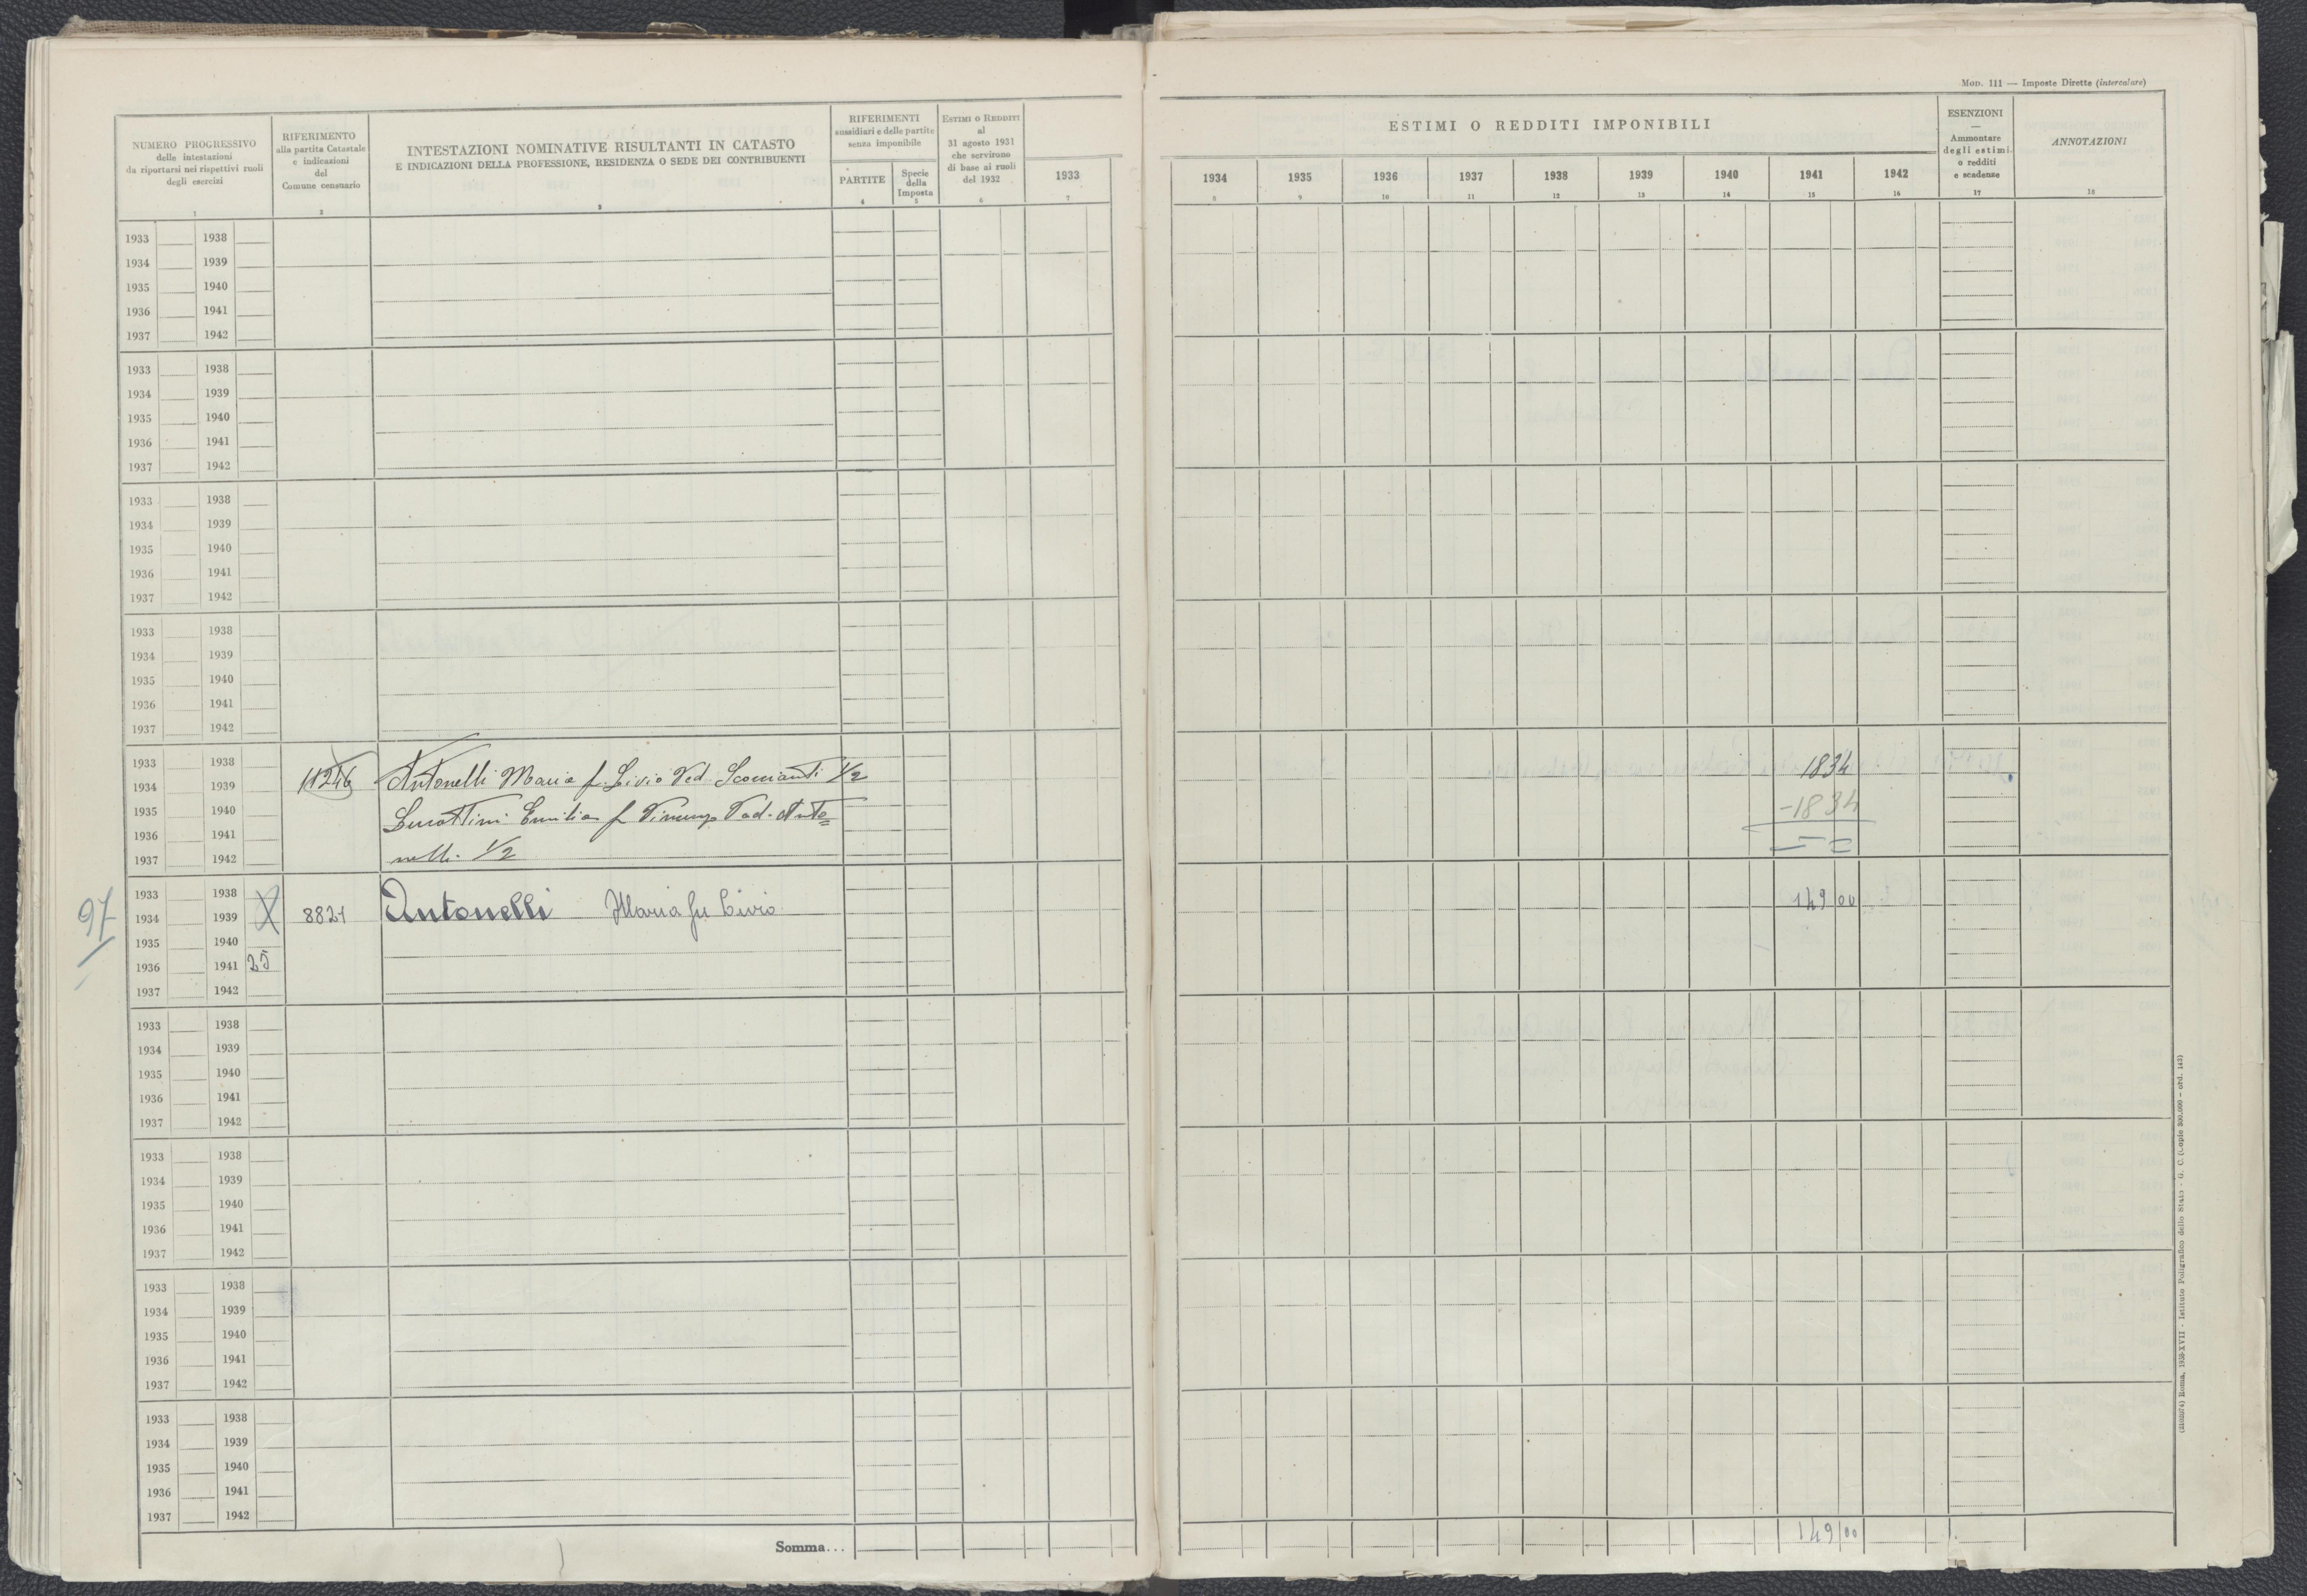 MOD. 111 — Imposte Dirette (intercalare)
NUMERO PROGRESSIVO
delle intestazioni
da riportarsi nei rispettivi ruoli
degli esercizi
1
RIFERIMENTO
alla partita Catastale
e indicazioni
del
Comune censuario
2
INTESTAZIONI NOMINATIVE RISULTANTI IN CATASTO
E INDICAZIONI DELLA PROFESSIONE, RESIDENZA O SEDE DEI CONTRIBUENTI
3
RIFERIMENTI
sussidiari e delle partite
senza imponibile
PARTITE
4
Specie
della
Imposta
5
ESTIMI O REDDITI
al
31 agosto 1931
che servirono
di base ai ruoli
del 1932
6
1933
7
ESTIMI O REDDITI IMPONIBILI
1934 1935 1936 1937 1938 1939 1940 1941 1942
8 9 10 11 12 13 14 15 16
ESENZIONI
—
Ammontare
degli estimi
o redditi
e scadenze
17
ANNOTAZIONI
18
1933 1938
1934 1939
1935 1940
1936 1941
1937 1942
1933 1938
1934 1939
1935 1940
1936 1941
1937 1942
1933 1938
1934 1939
1935 1940
1936 1941
1937 1942
1933 1938
1934 1939
1935 1940
1936 1941
1937 1942
1933 1938
1934 1939 11246 Antonelli Maria f. Livio Ved. 1/2 1834
1935 1940 Emilia f Ved. Anto= -1834
1936 1941
1937 1942 nelli. 1/2
1933 1938
97 1934 1939 X 8821 Antonelli Maria fu Livio 149 00
1935 1940
1936 1941 25
1937 1942
1933 1938
1934 1939
1935 1940
1936 1941
1937 1942
1933 1938
1934 1939
1935 1940
1936 1941
1937 1942
1933 1938
1934 1939
1935 1940
1936 1941
1937 1942
1933 1938
1934 1939
1935 1940
1936 1941
1937 1942
Somma... 149 00
Roma, 1939-XVII - Istituto Poligrafico dello Stato - G. C. (Copie 300.000 - ord. 143)